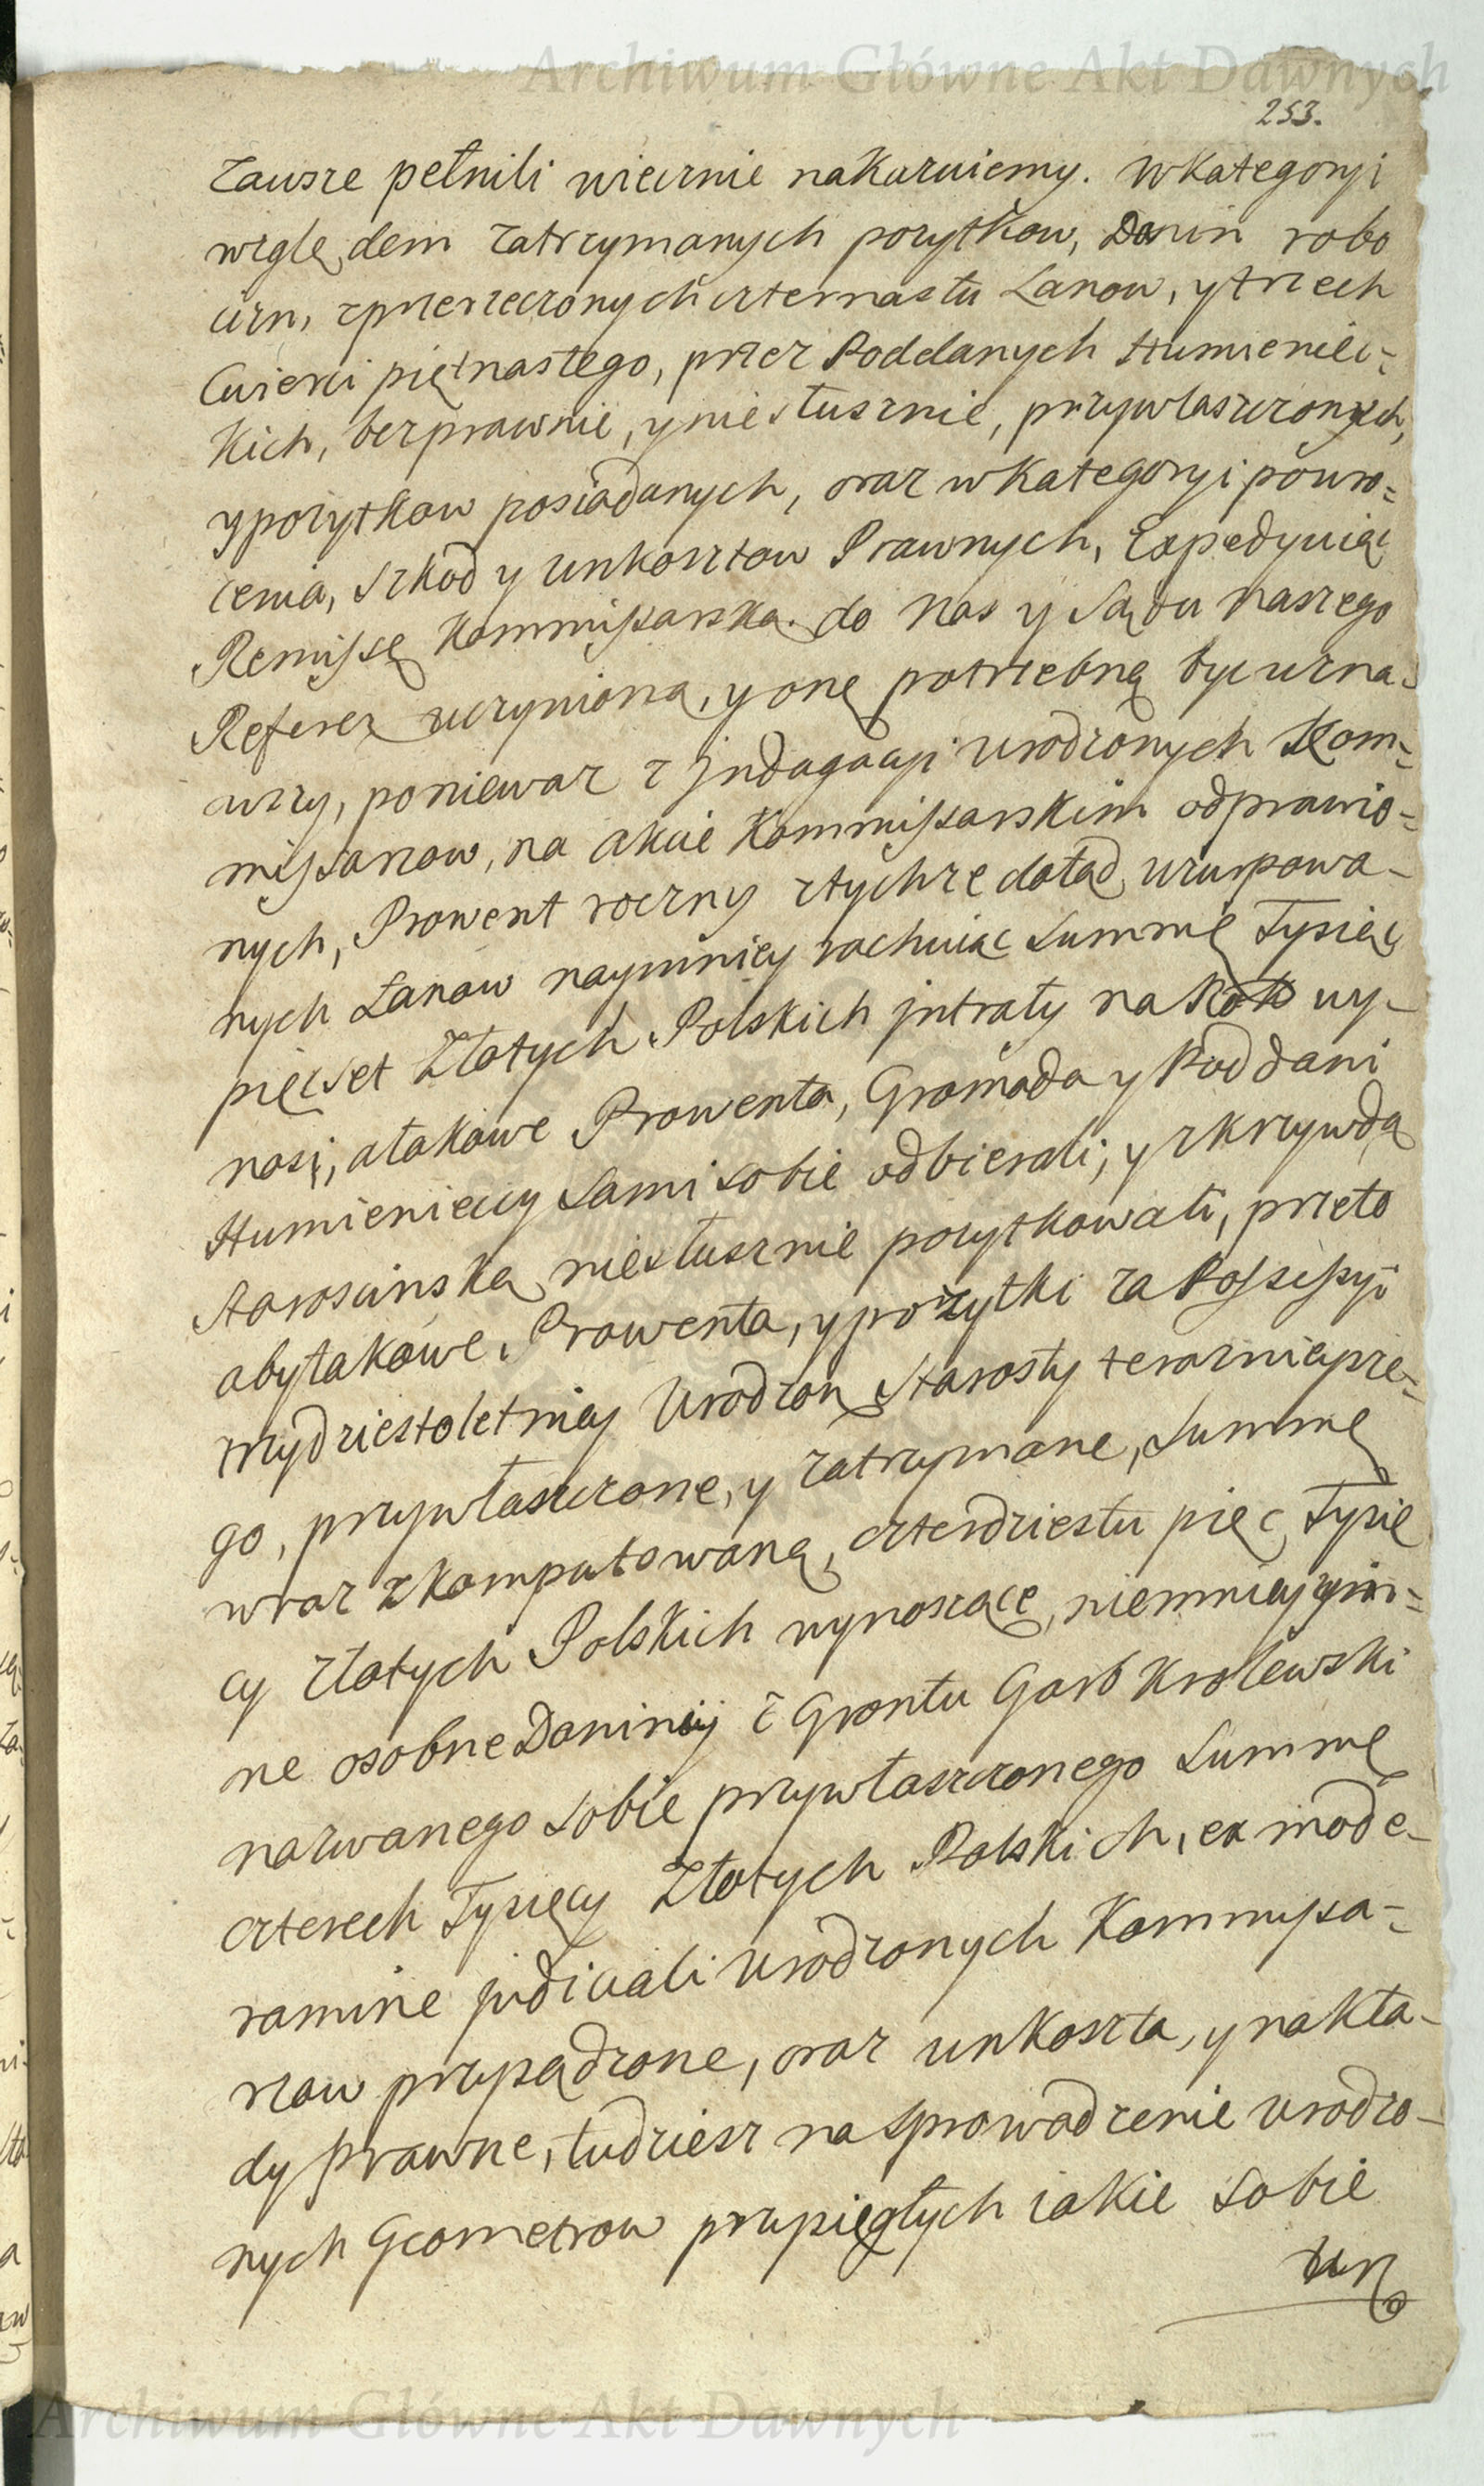 Archiwum Główne Akt Dawnych
253.
zawsze pełnili wiernie nakazuiemy. W kategoryi
wzglę dem zatrzymanych pozytkow, Danin robo
cizn, zprzerzeczonych czternastu Łanow, y trzech
Cwierci piętnastego, przez Poddanych Humienic=
kich, bezprawnie, y niesłusznie, przywłaszczonych,
y pozytkow posiadanych, oraz w kategoryi powro=
cenia, szkod y unkosztow Prawnych, Expedyuiąc
Remissę Kommissarską do Nas y Sądu Naszego
Referen uczynioną, y onę potrzebną byc uzna=
wszy, poniewaz z jndagacyi Urodzonych Kom=
missarzow, na akcie Kommissarskim odprawio=
nych, Prowent roczny ztychze dotąd uzurpowa-
nych Łanow naymniey rachuiąc Summę Tysiąc
pięcset Złotych Polskich jntraty na Rok wy-
nosi, a takowe Prowenta, Gromada y Poddani
Humieniccy sami sobie odbierali, y zkrzywdą
Starościnską niesłusznie pozytkowali, przeto
aby takowe Prowenta, y pożytki za Possessyi
trzydziestoletniey Urodzon Starosty teraznieysze=
go, przywłaszczone, y zatrzymane, Summę
wraz zkomputowaną, czterdziestu pięc Tysię
cy złotych Polskich wynoszące, niemniey jn=
ne osobne Daniny z Grontu Garb Krolewski
nazwanego sobie przywłaszczonego Summę
czterech Tysięcy Złotych Polskich, ex mode-
ramine judiciali Urodzonych Kommissa-
rzow przysądzone, oraz unkoszta, y nakła-
dy prawne, tudziesz na sprowadzenie Urodzo-
nych Geometrow przysięgłych iakie sobie
Archiwum Główne Akt Dawnych